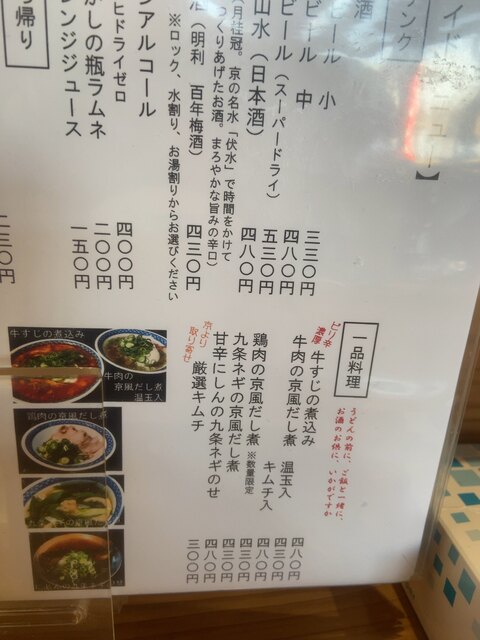 イド
ニュー】
ンク
酒
ビール 小 三三〇円
ビール 中 四八〇円
ビール（スーパードライ） 五三〇円
山水（日本酒） 四八〇円
月桂冠。京の名水「伏水」で時間をかけて
っくりあげたお酒。まろやかな旨みの辛口）
酒（明利 百年梅酒） 四三〇円
※ロック、水割り、お湯割りからお選びください
ンアルコール
ヒドライゼロ 四〇〇円
がしの瓶ラムネ 二〇〇円
レンジジュース 一五〇円
帰り
二三〇円
一品料理
うどんの前に、ご飯と一緒に、
お酒のお供に、いかがですか
ピリ辛
濃厚
牛すじの煮込み
牛肉の京風だし煮
温玉入
キムチ入
鶏肉の京風だし煮
九条ネギの京風だし煮
※数量限定
甘辛にしんの九条ネギのせ
京より
取り寄せ
厳選キムチ
四八〇円
四三〇円
四八〇円
四三〇円
四三〇円
四八〇円
三〇〇円
牛すじの煮込み
牛肉の
京風だし煮
温玉入
鶏肉の京風だし煮